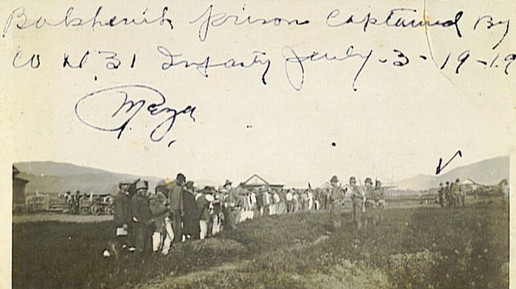 Bolshevik prison Captured By
Co M 31 Infanty July-3-19-19